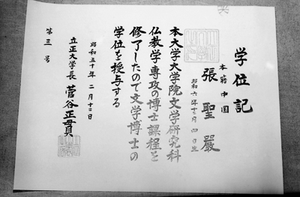 学位記
本籍 中国
張聖嚴
昭和五年十二月四日生
本大学大学院文学研究科
仏教学専攻の博士課程を
修了したので文学博士の
学位を授与する
昭和五十年二月十二日
立正大学長 菅谷正貫
第三号